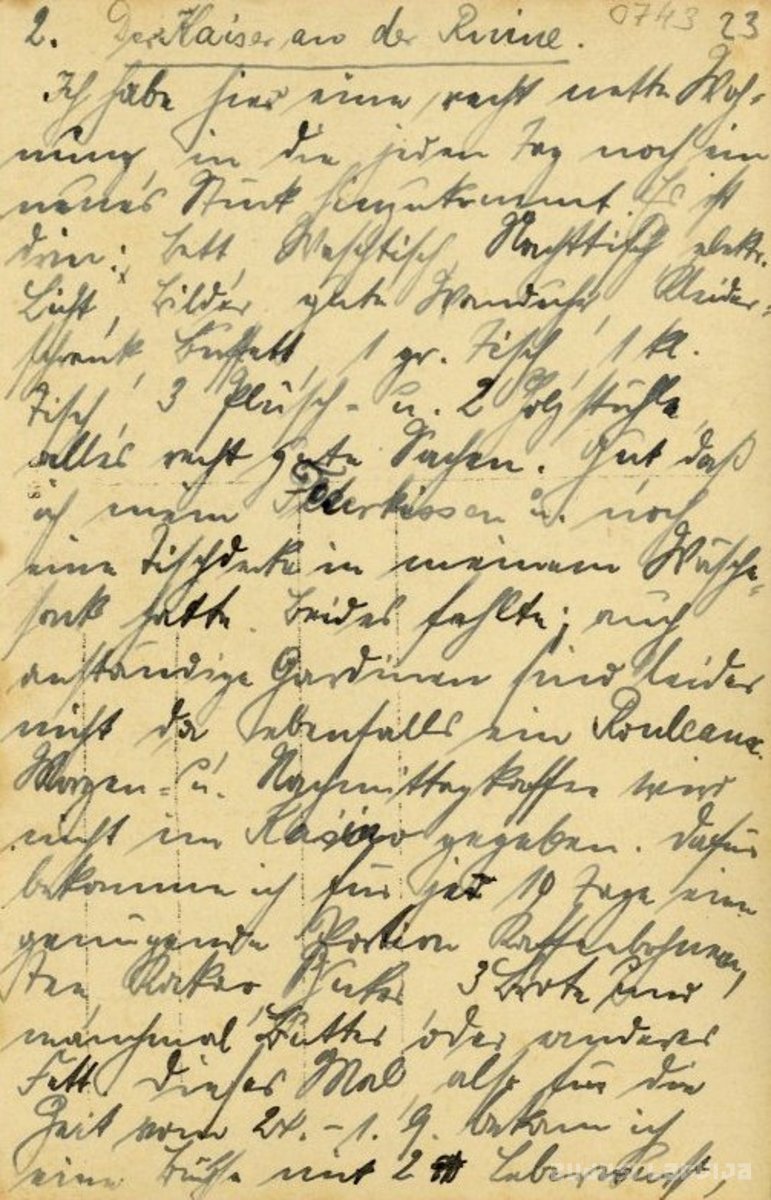 2. Der Kaiser an der Ruine. 0743 23
Ich habe hier eine recht nette Woh-
nung, in die jeden Tag noch ein
neues Stück hinzukommt. Es ist
drin: Bett, Waschtisch, Nachttisch, elektr.
Licht, Bilder, gute Wanduhr, Kleider-
schrank, Buffett, 1 gr. Tisch, 1 kl.
Tisch, 3 Plüsch- u. 2 Holzstühle,
alles recht gute Sachen. Gut, daß
ich mein Federkissen u. noch
eine Tischdecke in meinem Wäsche-
sack hatte. Beides fehlte; auch
anständige Gardinen sind leider
nicht da, ebenfalls ein Rouleaux.
Morgen- u. Nachmittagkaffee wird
nicht im Kasino gegeben. Dafür
bekomme ich für je 10 Tage eine
genügende Portion Kaffeebohnen,
Tee, Kakao, Zucker, 3 Brote und
manchmal Butter oder anderes
Fett. Dieses Mal, also für die
Zeit vom 24. - 1. 9. bekam ich
eine Büchse mit 2 Leberwurst,